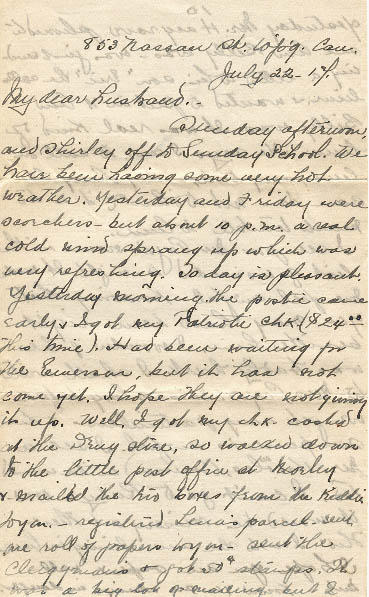 853 Nassau St. Wpg. Can.
July 22 - 17.
My dear Husband. -
Sunday afternoon,
and Shirley off to Sunday School. We
have been having some very hot
weather. Yesterday and Friday were
scorchers - but about 10 p.m. a real
cold wind sprang up which was
very refreshing. To day is pleasant.
Yesterday morning the postie came
early & I got my Patriotic chk. ($24.00
this time). Had been waiting for
the Govenor, but it has not
come yet. I hope they are not giving
it up. Well, I got my chk. cashed
at the Drug store, so walked down
to the little post office at Morley
& mailed the two boxes from the Kiddies
to you. - registered parcel. sent
one roll of papers to you - sent the
Clergymans & got 50¢ stamps. It
was a big lot of mailing but I